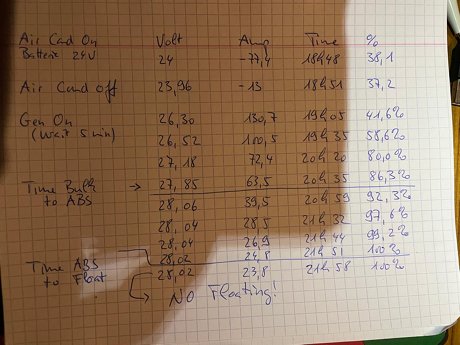 Air Cad On Volt Amp Time %
Batterie 24V 24 -77,4 18h48 38,1
Air Cand off 23,96 -13 18h51 37,2
Gen On 26,30 130,7 19h05 41,6%
(Wait 5 min) 26,52 100,5 19h35 58,6%
27,18 72,4 20h20 80,0%
Time Bulk → 27,85 63,5 20h35 86,3%
to ABS 28,06 39,5 20h59 92,3%
28,04 28,5 21h32 97,6%
28,04 26,9 21h44 99,2%
Time ABS 28,02 24,8 21h51 100%
to Float 28,02 23,8 21h58 100%
→ NO Floating!